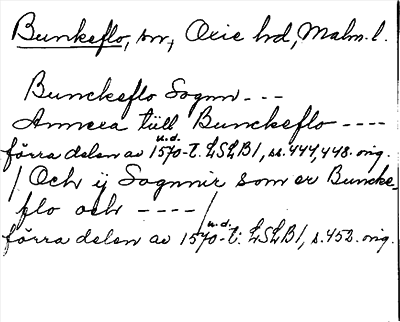 Bunkeflo, sn, Oxie hd, Malm. l.
Bunckeflo Sognn - - -
Annexa tiill Bunckeflo - - - -
förra delen av u.d. 1570-t. LSLB 1, ss. 444, 448. orig.
/ Och ij Sognnir som er Buncke-
flo och - - - - /
förra delen av u.d. 1570-t: LSLB 1, s. 452. orig.